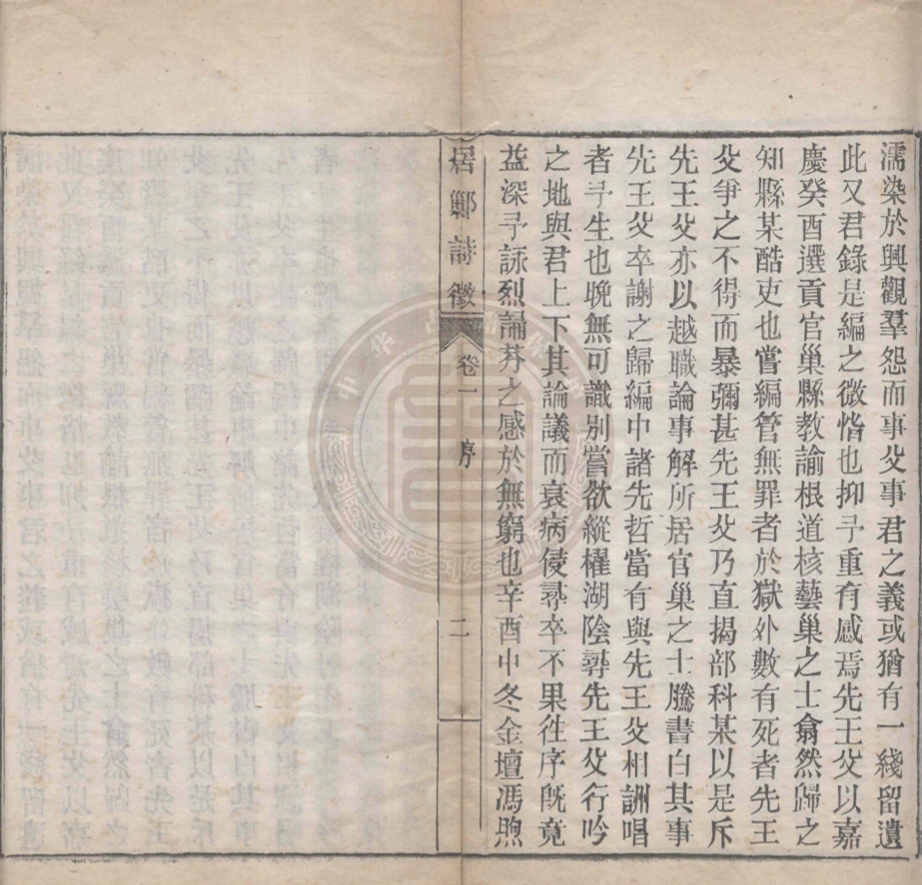 濡染於興觀羣怨而事父事君之義或猶有一綫留遺
此又君錄是編之微恉也抑予重有感焉先王父以嘉
慶癸酉選貢官巢縣教諭根道核藝巢之士翕然歸之
知縣某酷吏也嘗編管無罪者於獄外數有死者先王
父爭之不得而暴彌甚先王父乃直揭部科某以是斥
先王父亦以越職論事解所居官巢之士騰書白其事
先王父卒謝之歸編中諸先哲當有與先王父相詶唱
者予生也晚無可識別嘗欲縱櫂湖陰尋先王父行吟
之地與君上下其論議而衰病侵尋卒不果徃序旣竟
益深予詠烈論芬之感於無窮也辛酉中冬金壇馮煦
居鄛詩徵 卷一 序 二